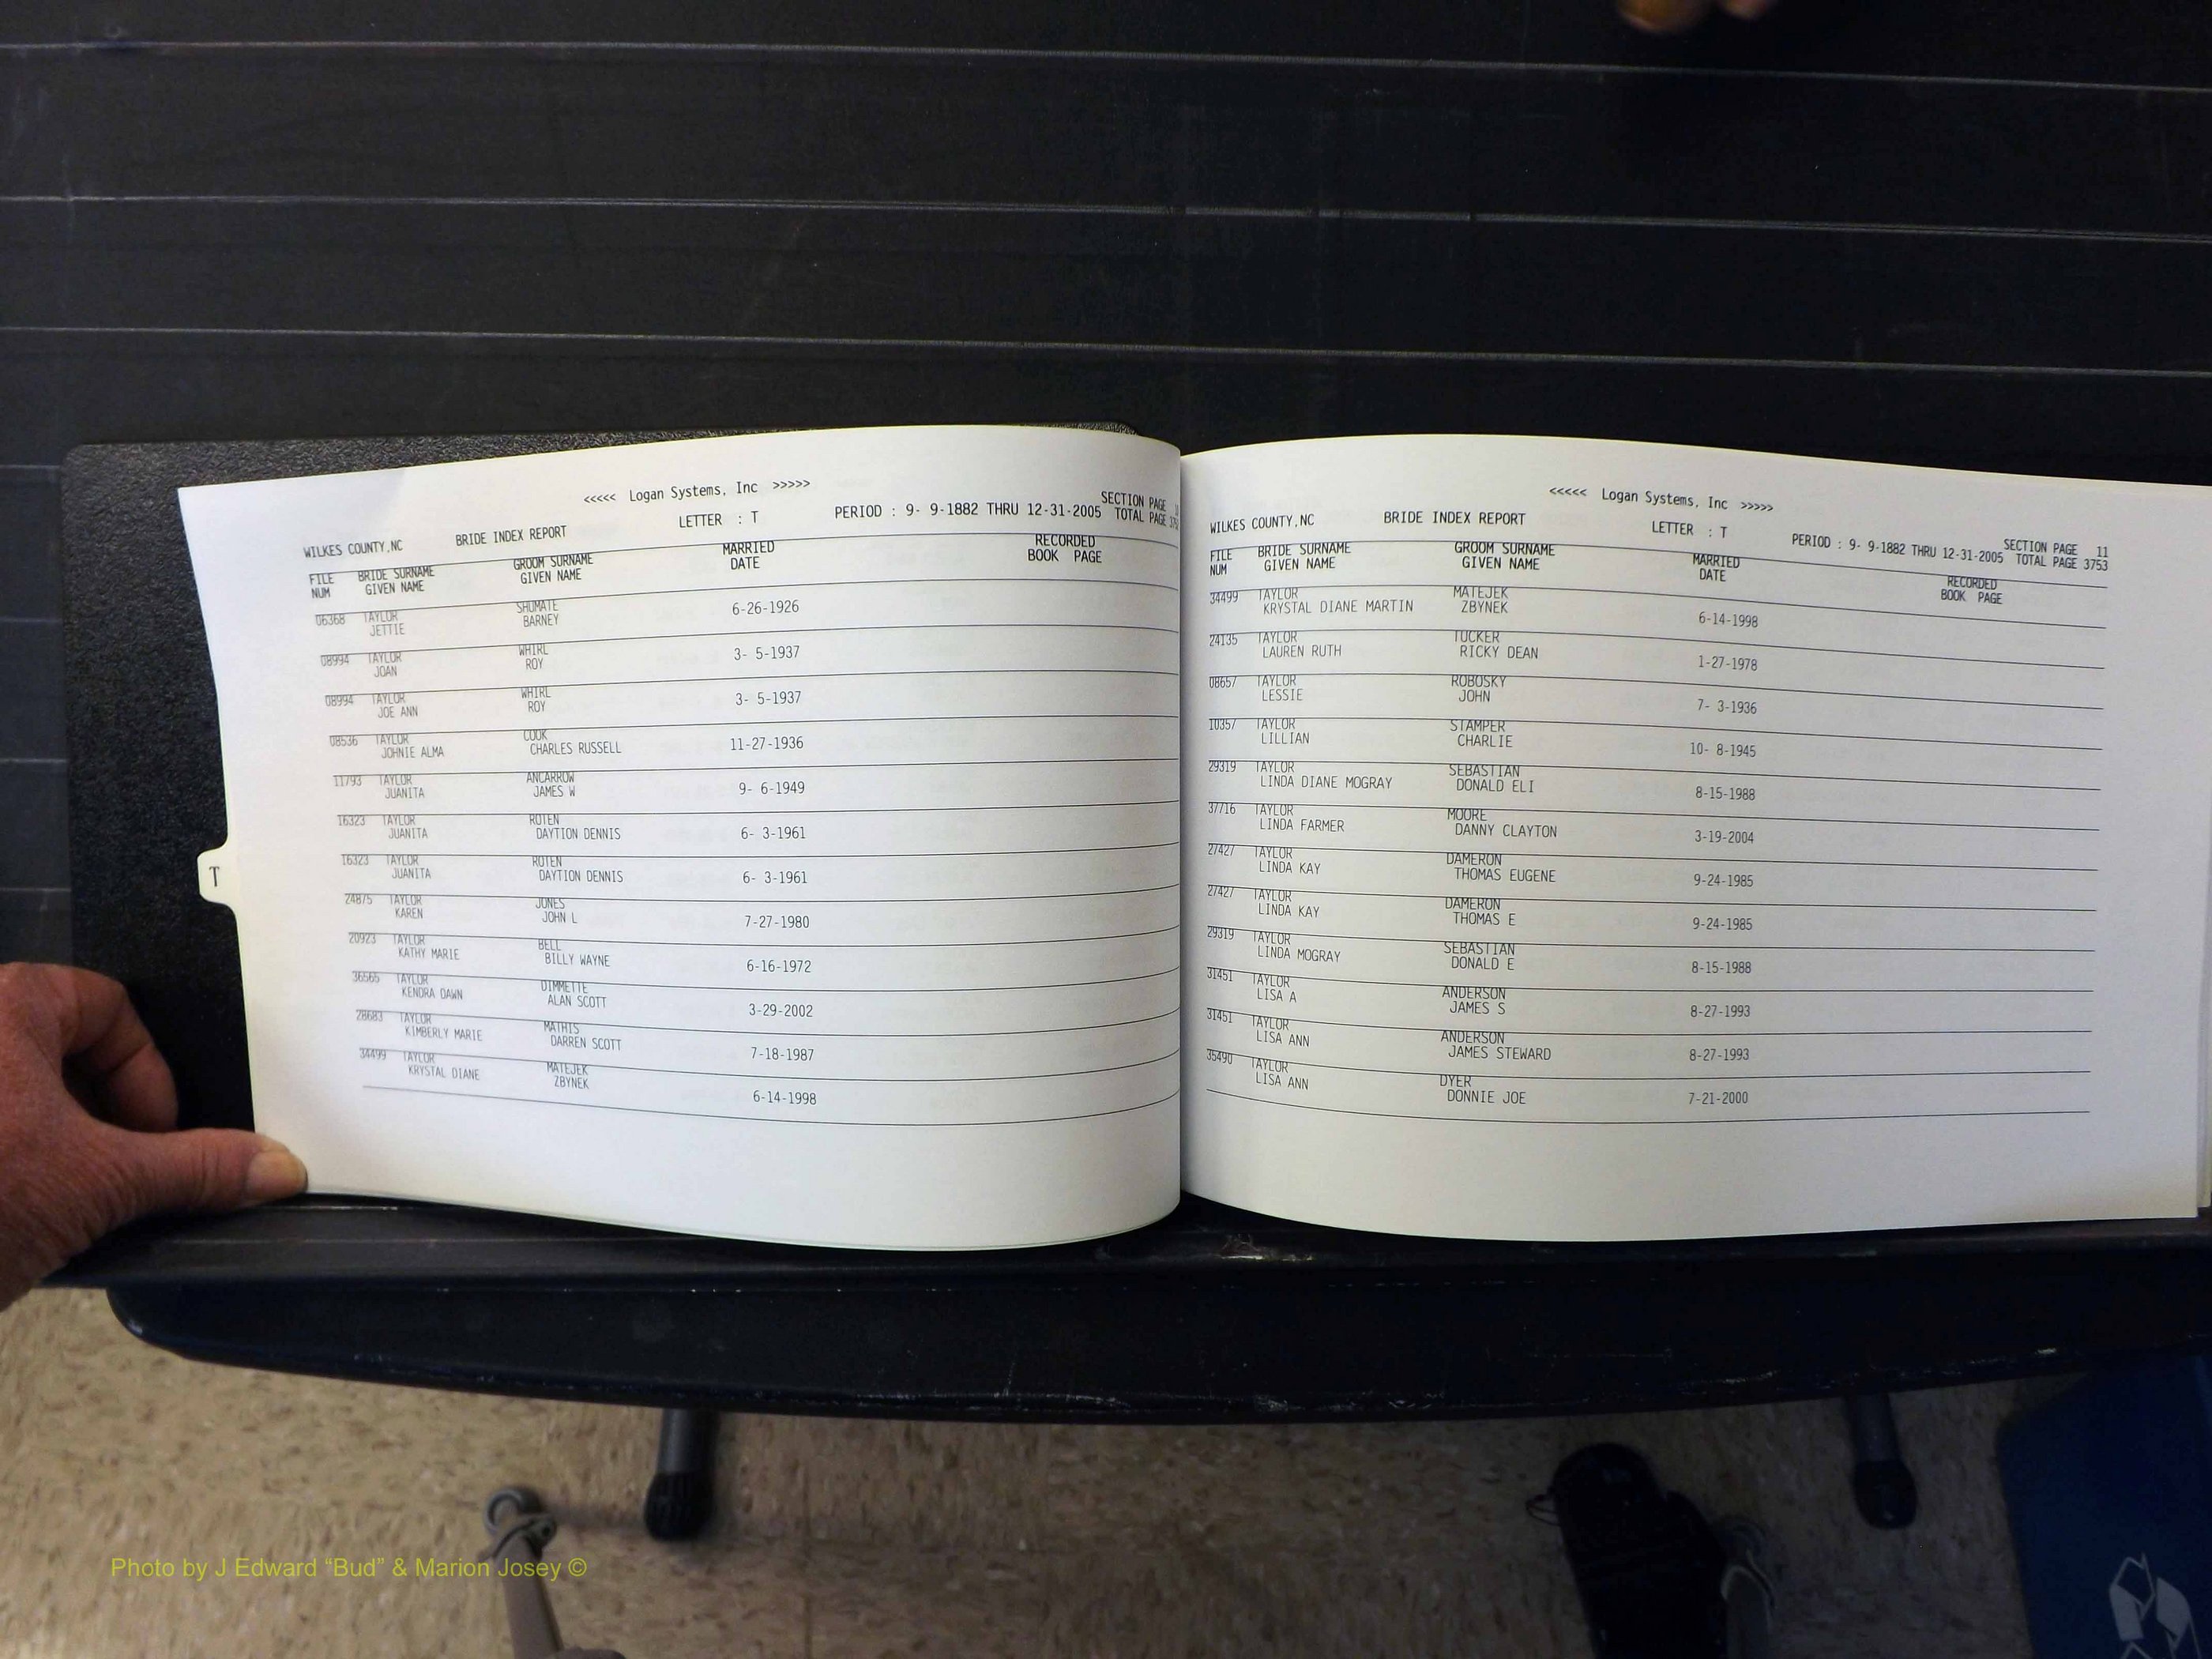 <<<<< Logan Systems, Inc >>>>>
SECTION PAGE
WILKES COUNTY,NC BRIDE INDEX REPORT LETTER : T PERIOD : 9- 9-1882 THRU 12-31-2005 TOTAL PAGE
FILE BRIDE SURNAME GROOM SURNAME MARRIED RECORDED
NUM GIVEN NAME GIVEN NAME DATE BOOK PAGE
06368 TAYLOR SHUMATE
JETTIE BARNEY 6-26-1926
08994 TAYLOR WHIRL
JOAN ROY 3- 5-1937
08994 TAYLOR WHIRL
JOE ANN ROY 3- 5-1937
08536 TAYLOR COOK
JOHNIE ALMA CHARLES RUSSELL 11-27-1936
11793 TAYLOR ANCARROW
JUANITA JAMES W 9- 6-1949
16323 TAYLOR ROTEN
JUANITA DAYTION DENNIS 6- 3-1961
16323 TAYLOR ROTEN
JUANITA DAYTION DENNIS 6- 3-1961
24875 TAYLOR JONES
KAREN JOHN L 7-27-1980
20923 TAYLOR BELL
KATHY MARIE BILLY WAYNE 6-16-1972
36565 TAYLOR DIMMETTE
KENDRA DAWN ALAN SCOTT 3-29-2002
28683 TAYLOR MATHIS
KIMBERLY MARIE DARREN SCOTT 7-18-1987
34499 TAYLOR MATEJEK
KRYSTAL DIANE ZBYNEK 6-14-1998
T
<<<<< Logan Systems, Inc >>>>>
SECTION PAGE 11
WILKES COUNTY,NC BRIDE INDEX REPORT LETTER : T PERIOD : 9- 9-1882 THRU 12-31-2005 TOTAL PAGE 3753
FILE BRIDE SURNAME GROOM SURNAME MARRIED RECORDED
NUM GIVEN NAME GIVEN NAME DATE BOOK PAGE
34499 TAYLOR MATEJEK
KRYSTAL DIANE MARTIN ZBYNEK 6-14-1998
24135 TAYLOR TUCKER
LAUREN RUTH RICKY DEAN 1-27-1978
08657 TAYLOR ROBOSKY
LESSIE JOHN 7- 3-1936
10357 TAYLOR STAMPER
LILLIAN CHARLIE 10- 8-1945
29319 TAYLOR SEBASTIAN
LINDA DIANE MOGRAY DONALD ELI 8-15-1988
37716 TAYLOR MOORE
LINDA FARMER DANNY CLAYTON 3-19-2004
27427 TAYLOR DAMERON
LINDA KAY THOMAS EUGENE 9-24-1985
27427 TAYLOR DAMERON
LINDA KAY THOMAS E 9-24-1985
29319 TAYLOR SEBASTIAN
LINDA MOGRAY DONALD E 8-15-1988
31451 TAYLOR ANDERSON
LISA A JAMES S 8-27-1993
31451 TAYLOR ANDERSON
LISA ANN JAMES STEWARD 8-27-1993
35490 TAYLOR DYER
LISA ANN DONNIE JOE 7-21-2000
Photo by J Edward “Bud” & Marion Josey ©